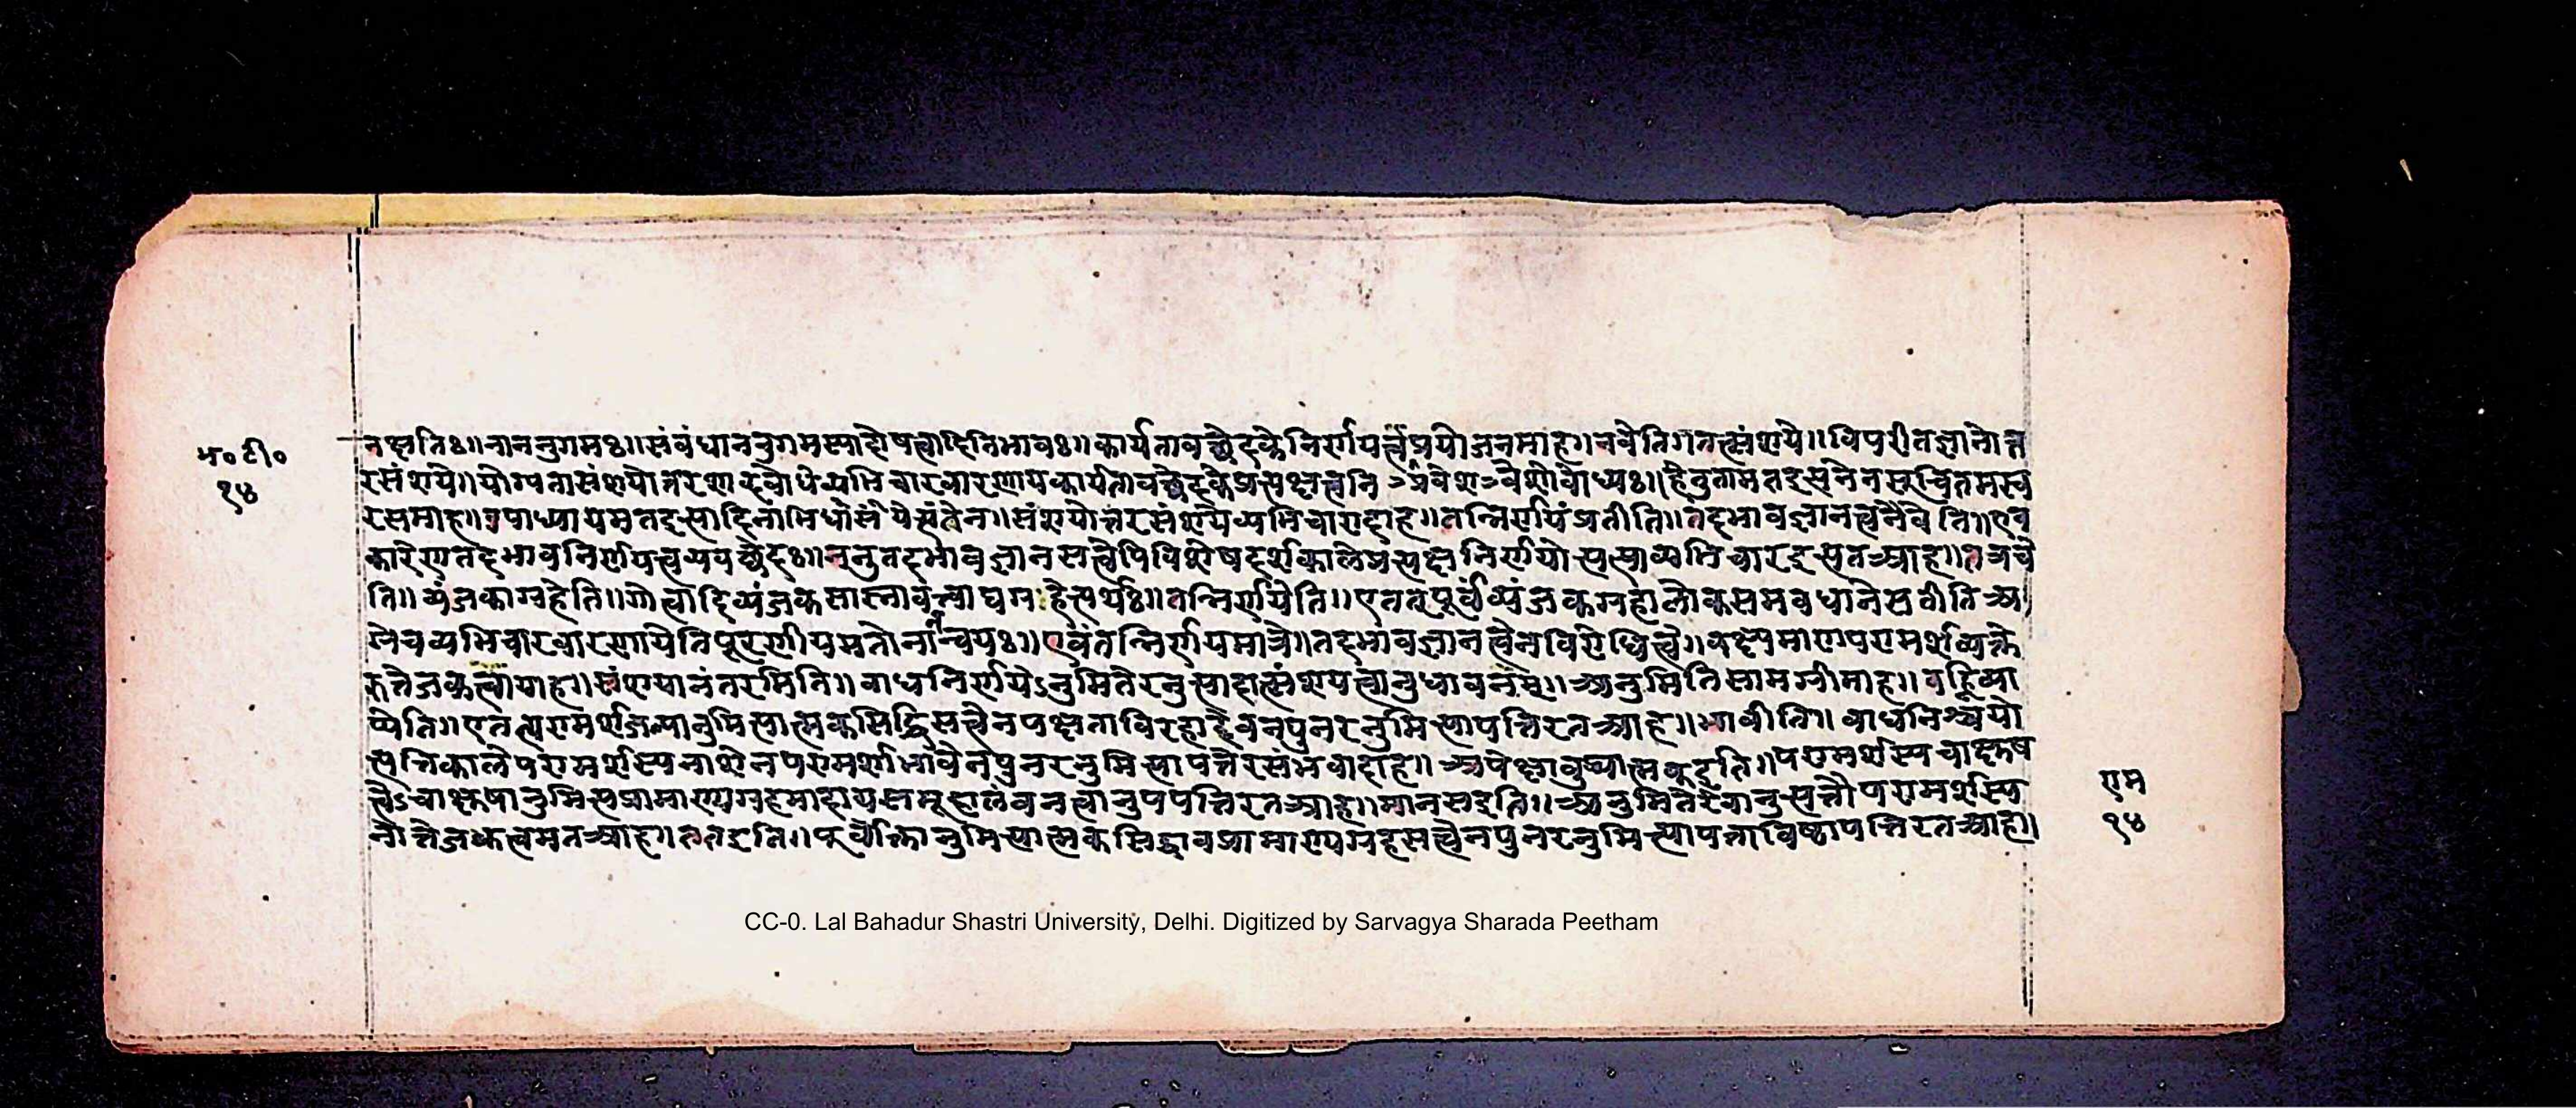 भ० टी०
१४
नक्षतिः॥ नाननुगमः॥ संबंधाननुगमस्यादोषत्वादितिभावः॥ कार्यतावच्छेदके निर्णयत्वप्रयोजनमाह॥ नचेति॥ तत्संशये॥ विपरीतज्ञानोत्त
रसंशये॥ योग्यतासंशयोत्तरशाब्दबोधे व्यभिचारवारणाय कार्यतावच्छेदके प्रत्यक्षत्वनि वेशो बोध्यः॥ हेतुतामत
रसमाह॥ उपाध्यायमत संशयोत्तरसंशये व्यभिचारादाह॥ तन्निर्णयं प्रतीति॥ तदभावज्ञानत्वेनैवेति॥ एव
कारेण तदभावनिर्णयत्वव्यवच्छेदः॥ ननु तदभावज्ञानसत्वेपि विशेषदर्शकाले प्रत्यक्षनिर्णयो व्यभिचार अतआह॥ तत्रचे
ति॥ व्यंजकाग्रहेति॥ गोत्वादिव्यंजकसास्नावत्त्वाद्यग्रहेत्यर्थः॥ तन्निर्णयेति॥ एतत्पूर्वं व्यंजकग्रहालोकसमवधाने
व्यभिचारवारणायेति पूरणीयमतोनान्वयः॥ एवं तन्निर्णयमात्रे॥ तदभावज्ञानत्वेन विरोधित्वे॥ वक्ष्यमाणपरामर्शव्यक्ते
रुत्तेजकत्वायाह॥ संशयानंतरमिति॥ बाधनिर्णयेऽनुमितेरनुत्पादात्संशयत्वानुधावनम्॥ अनुमितिसामग्रीमाह॥ वह्निव्या
प्येति॥ एतत्परामर्शजन्यानुमित्यात्मकसिद्धिसत्त्वेन पक्षताविरहादेव न पुनरनुमित्यापत्तिरत आह॥ भावीति॥ बाधनिश्चयो
त्पत्तिकाले परामर्शस्य नाशेन परामर्शाभावेन पुनरनुमित्यापत्तेरसंभवादाह॥ अपेक्षाबुध्यात्मकइति॥ परामर्शस्य चाक्षुष
त्वेऽचाक्षुषानुमित्यप्रामाण्यग्रहमादाय समूहालंबनत्वानुपपत्तिरत आह॥ मानसइति॥ अनुमितेरेवानुत्पत्तौ परामर्शस्य
नोत्तेजकत्वमत आह॥ ततइति॥ पूर्वोक्तानुमित्यात्मकसिद्धावप्रामाण्यग्रहसत्त्वेन पुनरनुमित्यापत्ताविष्टापत्तिरत आह॥
राम
१४
CC-0. Lal Bahadur Shastri University, Delhi. Digitized by Sarvagya Sharada Peetham